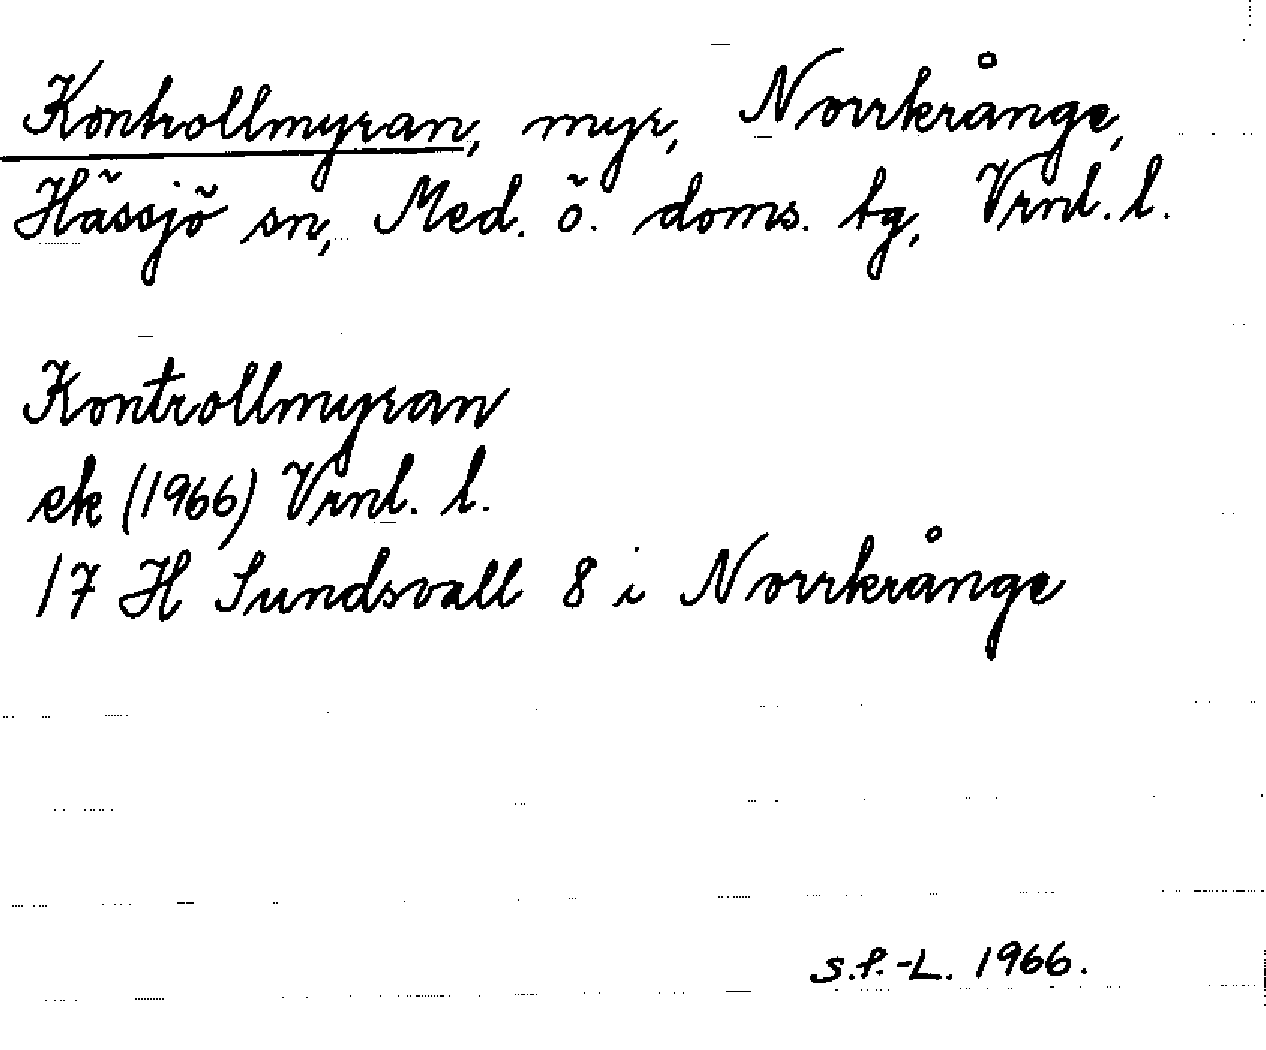 Kontrollmyran, myr, Norrkrånge,
Hässjö sn, Med. ö. doms. tg, Vrnl. l.
Kontrollmyran
ek (1966) Vrnl. l.
17 H Sundsvall 8 i Norrkrånge
S.P.-L. 1966.